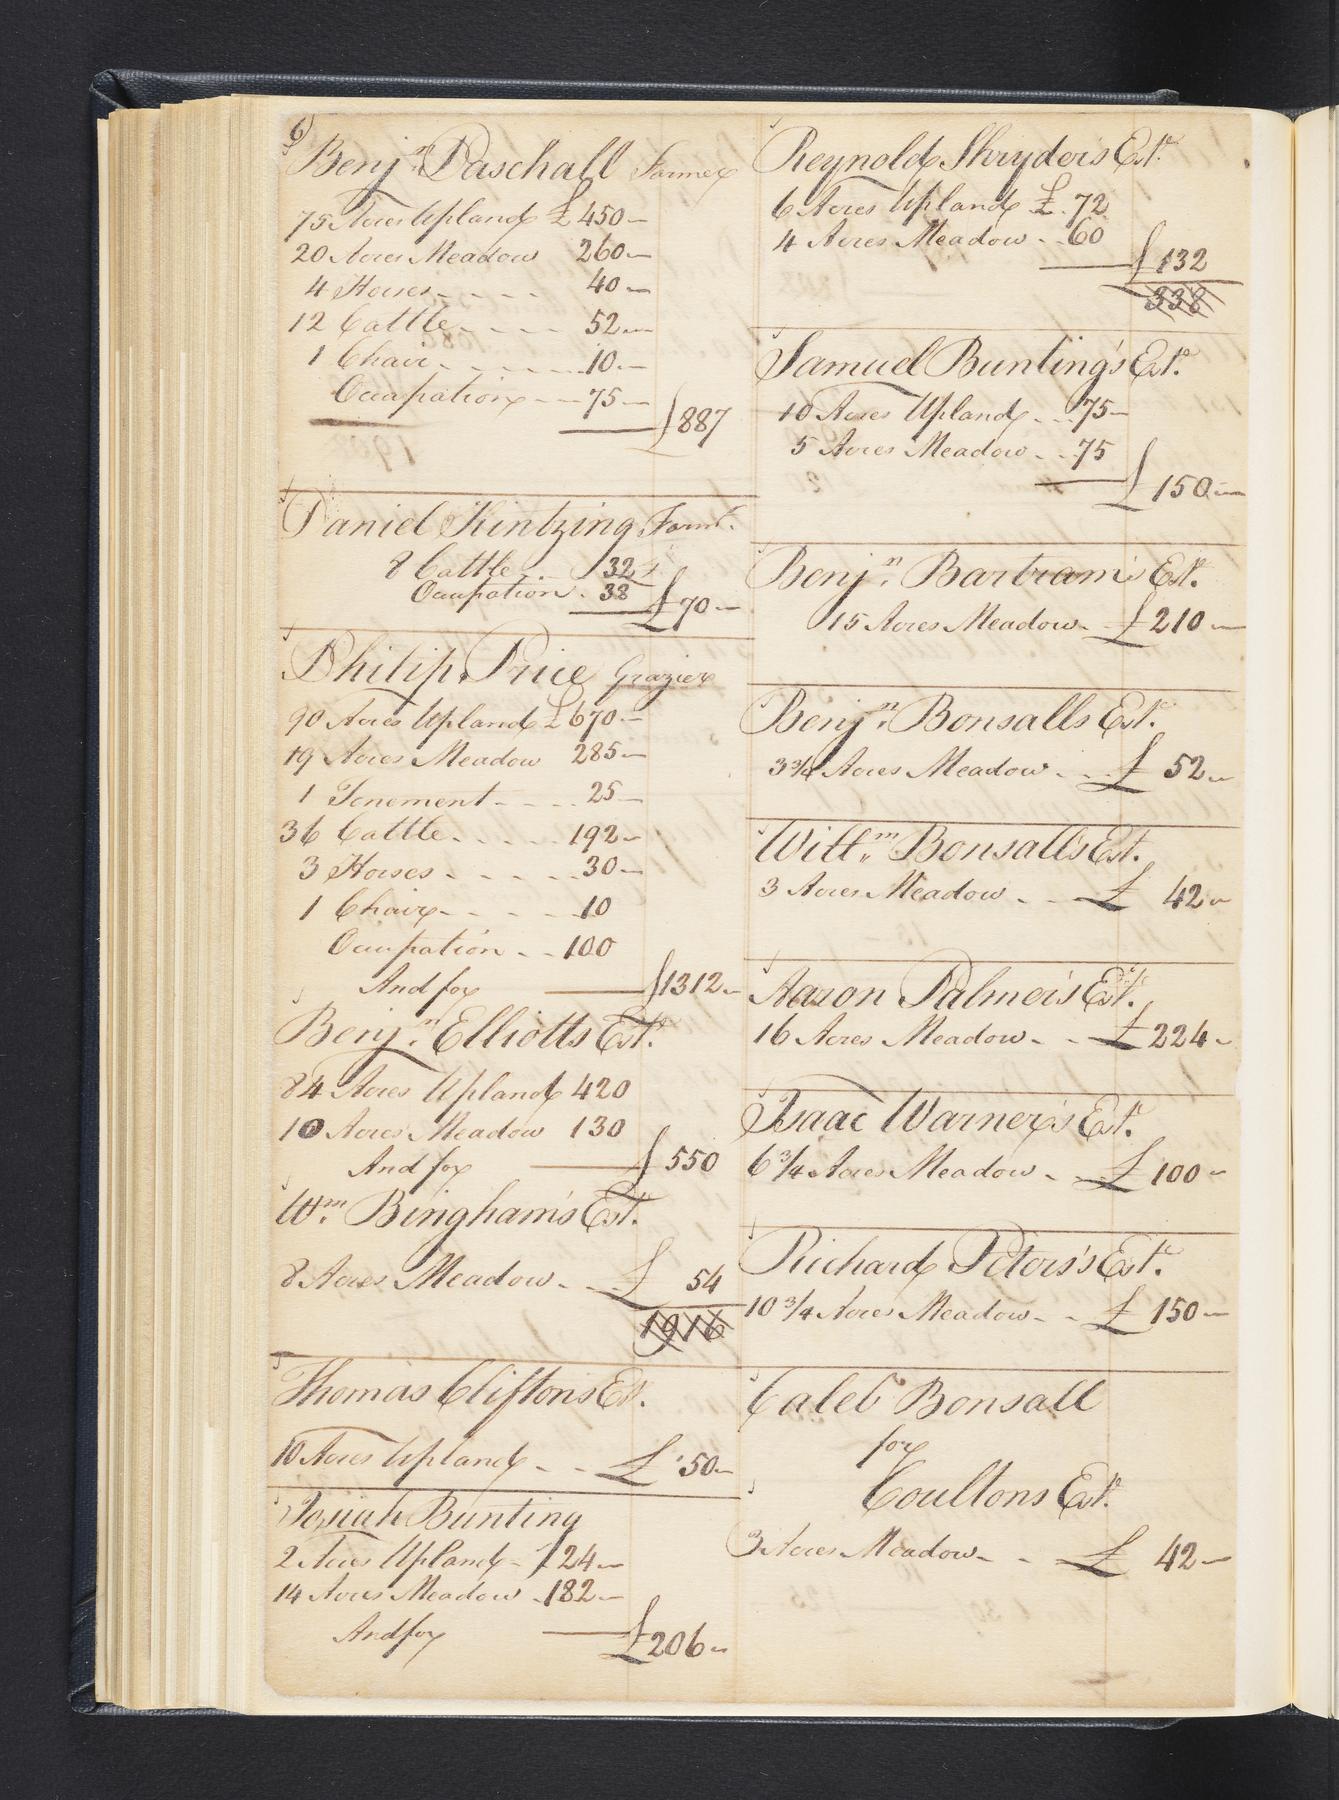 6)
Benjn. Paschall Farmer
75 Acres Upland £450
20 Acres Meadow 260
4 Horses 40
12 Cattle 52
1 Chair 10
Occupation 75
£887
Daniel Kintzing Farmr.
8 Cattle 32
Occupation 38
£70
Philip Price Grazier
90 Acres Upland £670
19 Acres Meadow 285
1 Tenement 25
36 Cattle 192
3 Horses 30
1 Chair 10
Occupation 100
And for £1312
Benjn. Elliotts Este.
84 Acres Upland 420
10 Acres Meadow 130
And for £550
Wm. Bingham's Este.
8 Acres Meadow £ 54
1916
Thomas Cliftons Est.
10 Acres Upland £50
Josiah Bunting
2 Acres Upland 24
14 Acres Meadow 182
And for
£206
Reynold Shryder's Este.
6 Acres Upland £72
4 Acres Meadow 60
£132
338
Samuel Bunting's Este.
10 Acres Upland 75
5 Acres Meadow 75
£150
Benjn. Bartram's Este.
15 Acres Meadow £210
Benjn. Bonsalls Este.
3 3/4 Acres Meadow £ 52
Willm. Bonsall's Est.
3 Acres Meadow £ 42
Aaron Palmer's Este.
16 Acres Meadow £224
Isaac Warner's Este.
6 3/4 Acres Meadow £100
Richard Peters's Este.
10 3/4 Acres Meadow £150
Caleb Bonsall
for
Coultons Este.
3 Acres Meadow £ 42